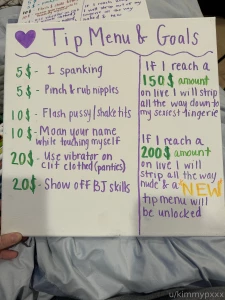 Tip Menu & Goals
5$ - 1 spanking
5$ - Pinch & rub nipples
10$ - Flash pussy/shake tits
10$ - Moan your name
while touching myself
20$ - Use vibrator on
clit clothed (panties)
20$ - Show off BJ skills
If I reach a
150$ amount
on live I will strip
all the way down to
my sexiest lingerie
If I reach a
200$ amount
on live I will
strip all the way
nude & a NEW
tip menu will
be unlocked
u/kimmypxxx